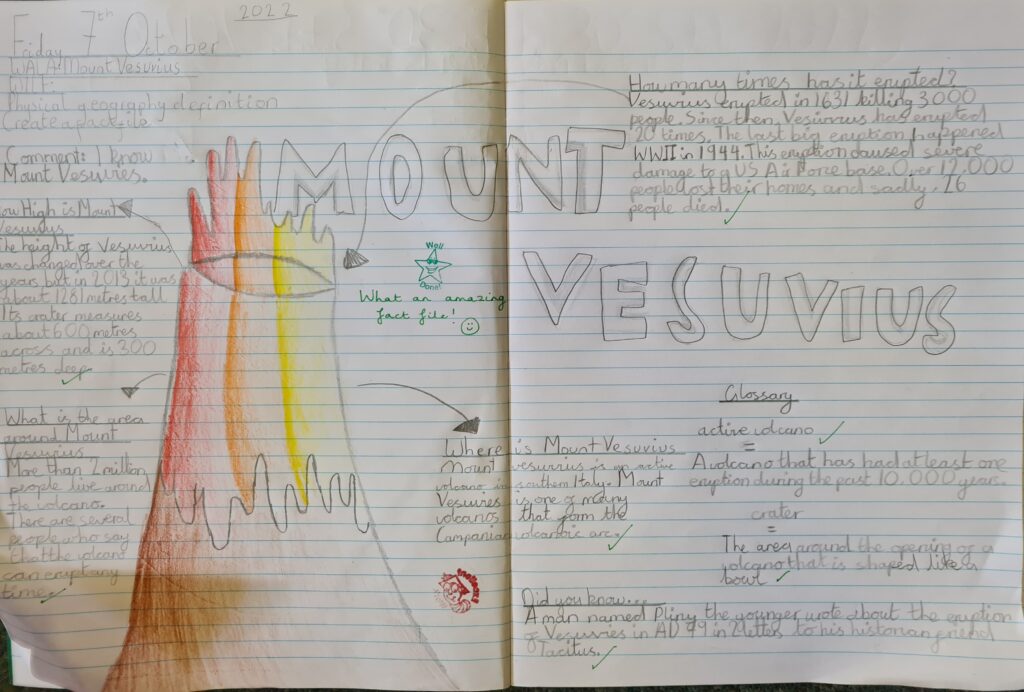 2022
Friday 7th October
WALA: Mount Vesuvius
WILF:
Physical geography definition
Create a fact file
Comment: I know
Mount Vesuvires.
How High is Mount
Vesuvius
The height of Vesuvius
was changed over the
years but in 2013 it was
about 1281 metres tall
Its crater measures
about 600 metres
across and is 300
metres deep.
What is the area
around Mount
Vesuvius
More than 2 million
people live around
the volcano.
There are several
people who say
that the volcano
can erupt any
time.
MOUNT
VESUVIUS
Well
Done!
What an amazing
fact file!
Where is Mount Vesuvius
Mount vesuvius is an active
volcano in southern Italy. Mount
Vesuvires is one of many
volcanos that form the
Campanian volcanoic arc.
How many times has it erupted?
Vesuvius erupted in 1631 killing 3000
people. Since then, Vesuvius has erupted
20 times. The last big eruption happened
WWII in 1944. This eruption caused severe
damage to a US Air Force base. Over 12,000
people lost their homes and sadly, 26
people died.
Glossary
active volcano
=
A volcano that has had at least one
eruption during the past 10.000 years.
crater
=
The area around the opening of a
volcano that is shaped like a
bowl
Did you know...
A man named Pliny the younger wrote about the eruption
of Vesuvires in AD 79 in 2 letters to his historian friend
Tacitus.